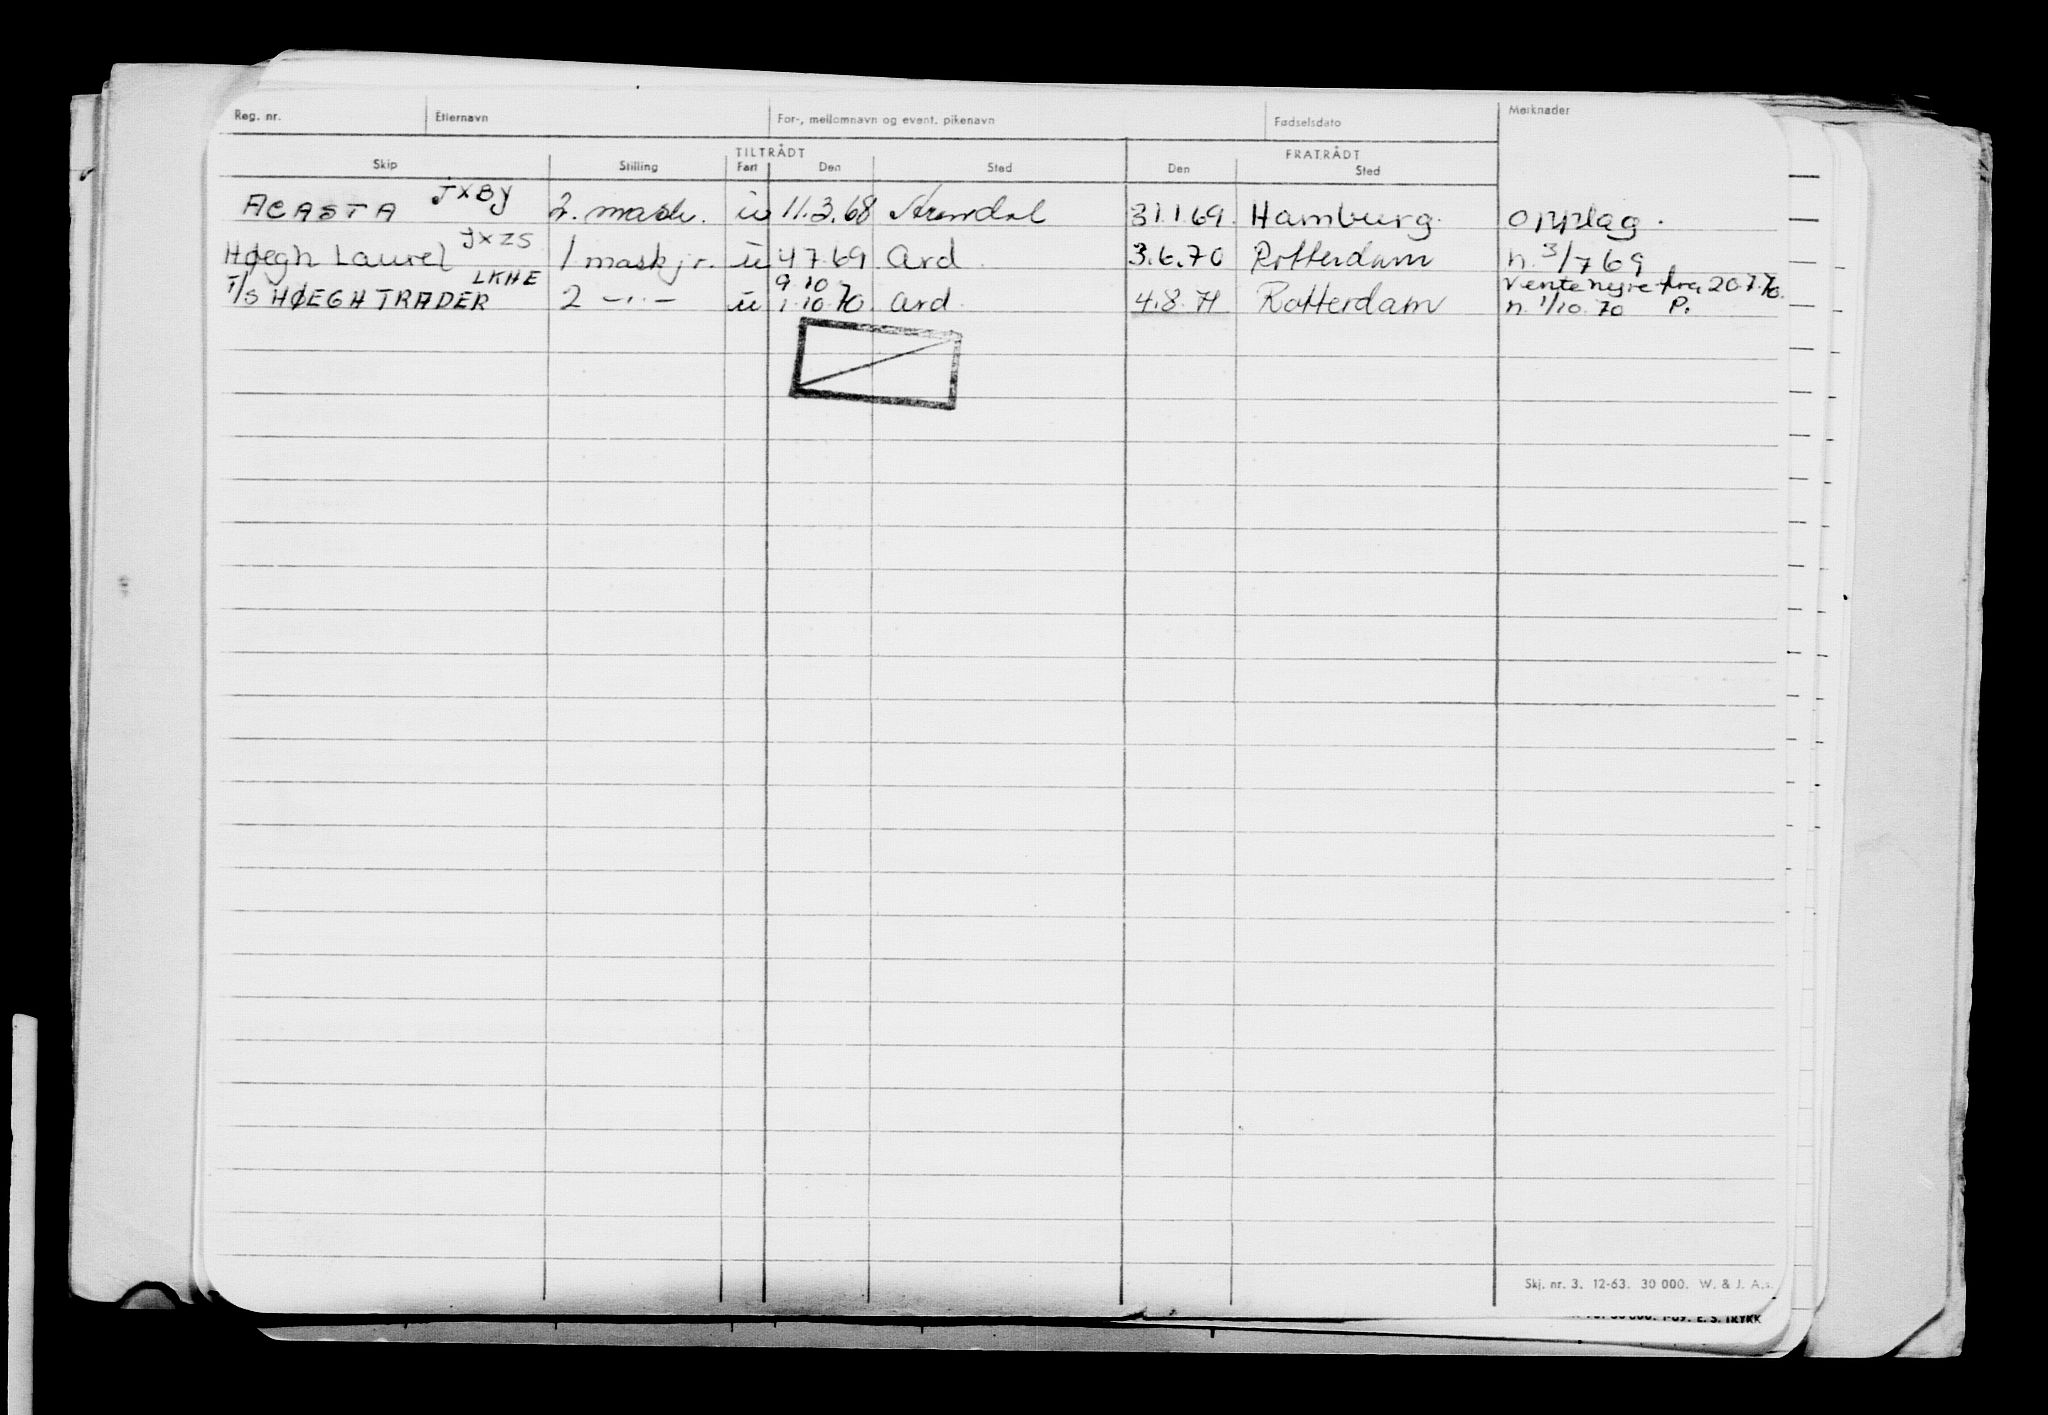 Reg. nr. Etternavn For-, mellomnavn og event. pikenavn Fødselsdato Merknader
TILTRÅDT FRATRÅDT
Skip Stilling Fart Den Sted Den Sted
ACASTA JXBY 2. mask. u 11.3.68 Arendal 31.1.69. Hamburg. opplag.
Høegh Laurel JXZS 1 maskjr. u 4 7.69 Ard. 3.6.70 Rotterdam n. 3/7 69
LKHE 9.10 Ventehyre fra 20.7.70.
T/S HØEGH TRADER 2 —"— u 1.10.70. Ard. 4.8.71 Rotterdam n. 1/10.70 P.
Skj. nr. 3. 12-63. 30 000. W. & J. A.s.
1-69. E. S. TRYKK